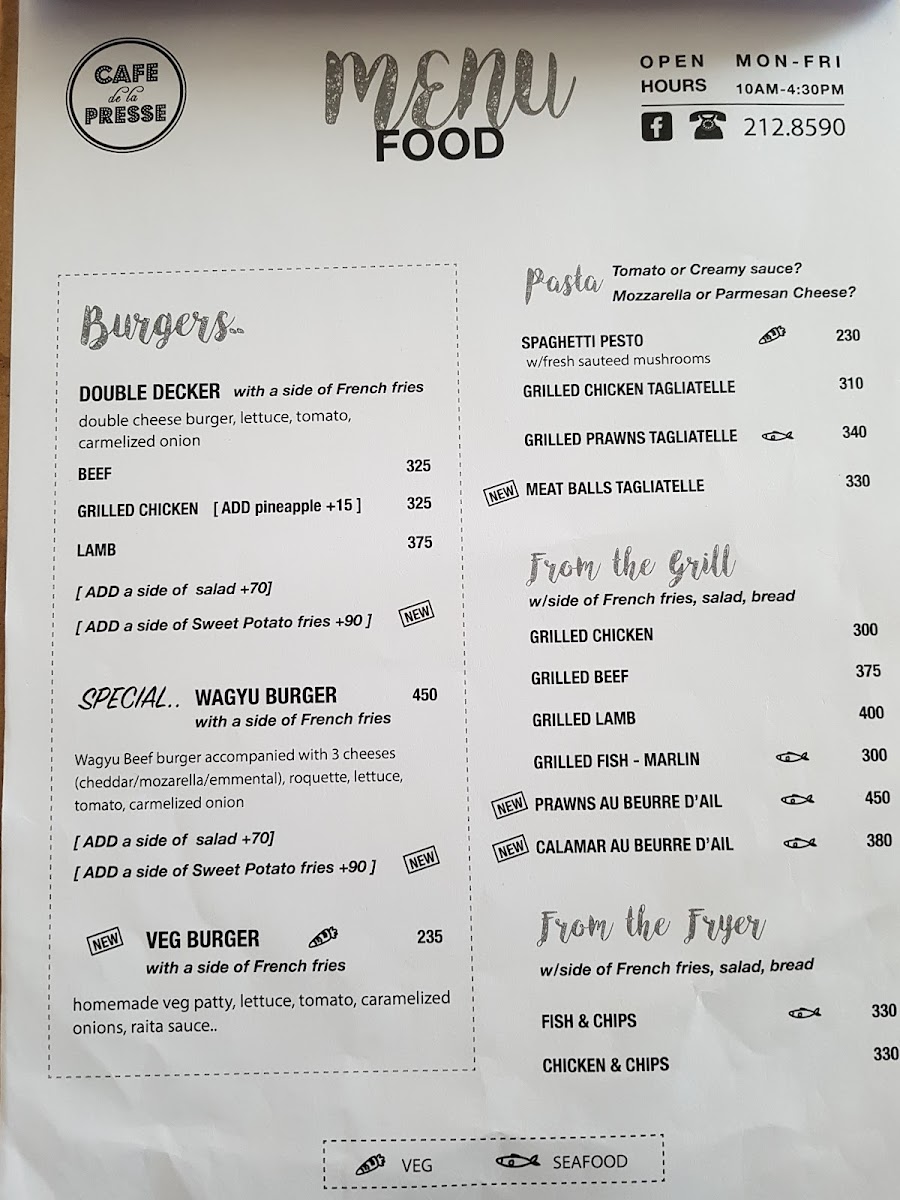 CAFE
de la
PRESSE
MENU
FOOD
OPEN MON-FRI
HOURS 10AM-4:30PM
212.8590
Burgers..
DOUBLE DECKER with a side of French fries
double cheese burger, lettuce, tomato,
carmelized onion
BEEF 325
GRILLED CHICKEN [ ADD pineapple +15 ] 325
LAMB 375
[ ADD a side of salad +70]
[ ADD a side of Sweet Potato fries +90 ] NEW
SPECIAL.. WAGYU BURGER 450
with a side of French fries
Wagyu Beef burger accompanied with 3 cheeses
(cheddar/mozarella/emmental), roquette, lettuce,
tomato, carmelized onion
[ ADD a side of salad +70]
[ ADD a side of Sweet Potato fries +90 ] NEW
NEW VEG BURGER 235
with a side of French fries
homemade veg patty, lettuce, tomato, caramelized
onions, raita sauce..
Pasta Tomato or Creamy sauce?
Mozzarella or Parmesan Cheese?
SPAGHETTI PESTO 230
w/fresh sauteed mushrooms
GRILLED CHICKEN TAGLIATELLE 310
GRILLED PRAWNS TAGLIATELLE 340
NEW MEAT BALLS TAGLIATELLE 330
From the Grill
w/side of French fries, salad, bread
GRILLED CHICKEN 300
GRILLED BEEF 375
GRILLED LAMB 400
GRILLED FISH - MARLIN 300
NEW PRAWNS AU BEURRE D'AIL 450
NEW CALAMAR AU BEURRE D'AIL 380
From the Fryer
w/side of French fries, salad, bread
FISH & CHIPS 330
CHICKEN & CHIPS 330
VEG SEAFOOD